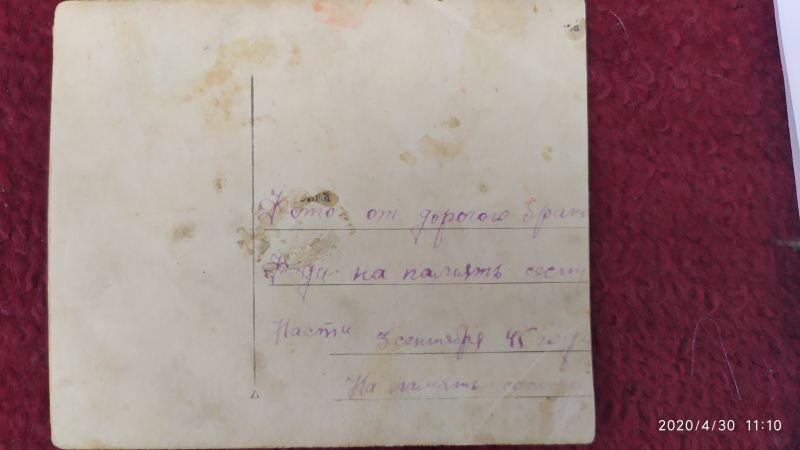 Фото от дорогого брат
на память сест
Насти 3 сентября 45 года
На память
2020/4/30 11:10